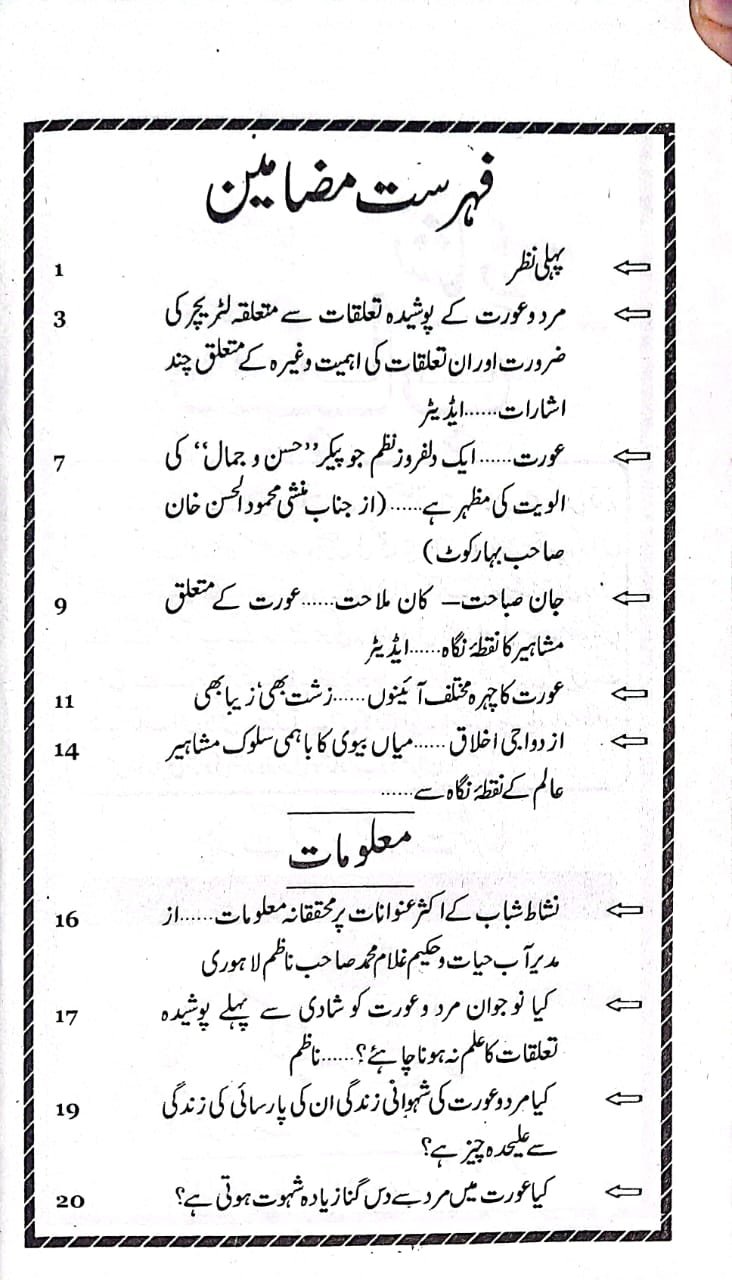 فہرست مضامین
پہلی نظر 1
مرد وعورت کے پوشیدہ تعلقات سے متعلقہ لٹریچر کی 3
ضرورت اوران تعلقات کی اہمیت وغیرہ کے متعلق چند
اشارات......ایڈیٹر
عورت......ایک دلفروز نظم جو پیکر ’’حسن و جمال‘‘ کی 7
الویت کی مظہر ہے......(از جناب منشی محمودالحسن خان
صاحب بہارکوٹ)
جان صباحت— کان ملاحت......عورت کے متعلق 9
مشاہیر کا نقطۂ نگاہ......ایڈیٹر
عورت کا چہرہ مختلف آئینوں......زشت بھی‘ زیبا بھی 11
ازدواجی اخلاق......میاں بیوی کا باہمی سلوک مشاہیر 14
عالم کے نقطۂ نگاہ سے......
معلومات
نشاط شباب کے اکثر عنوانات پر محققانہ معلومات......از 16
مدیر آب حیات وحکیم غلام محمد صاحب ناظم لاہوری
کیا نوجوان مرد وعورت کو شادی سے پہلے پوشیدہ 17
تعلقات کا علم نہ ہونا چاہئے؟......ناظم
کیا مرد وعورت کی شہوانی زندگی ان کی پارسائی کی زندگی 19
سے علیحدہ چیز ہے؟
کیا عورت میں مرد سے دس گنا زیادہ شہوت ہوتی ہے؟ 20